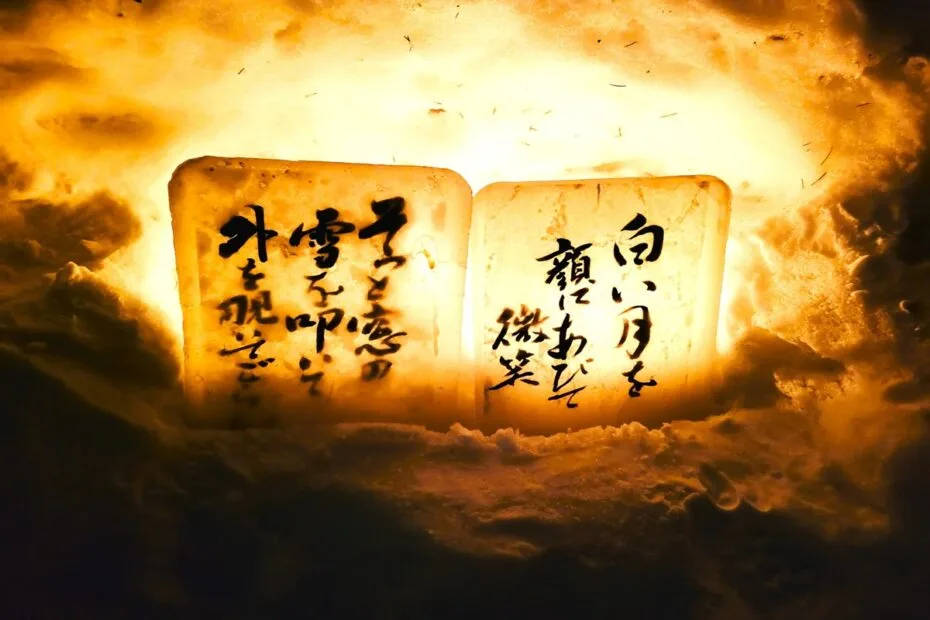 白い月を
顔にあびて
微笑
そっと窓の
雪を叩いて
外を覗そば